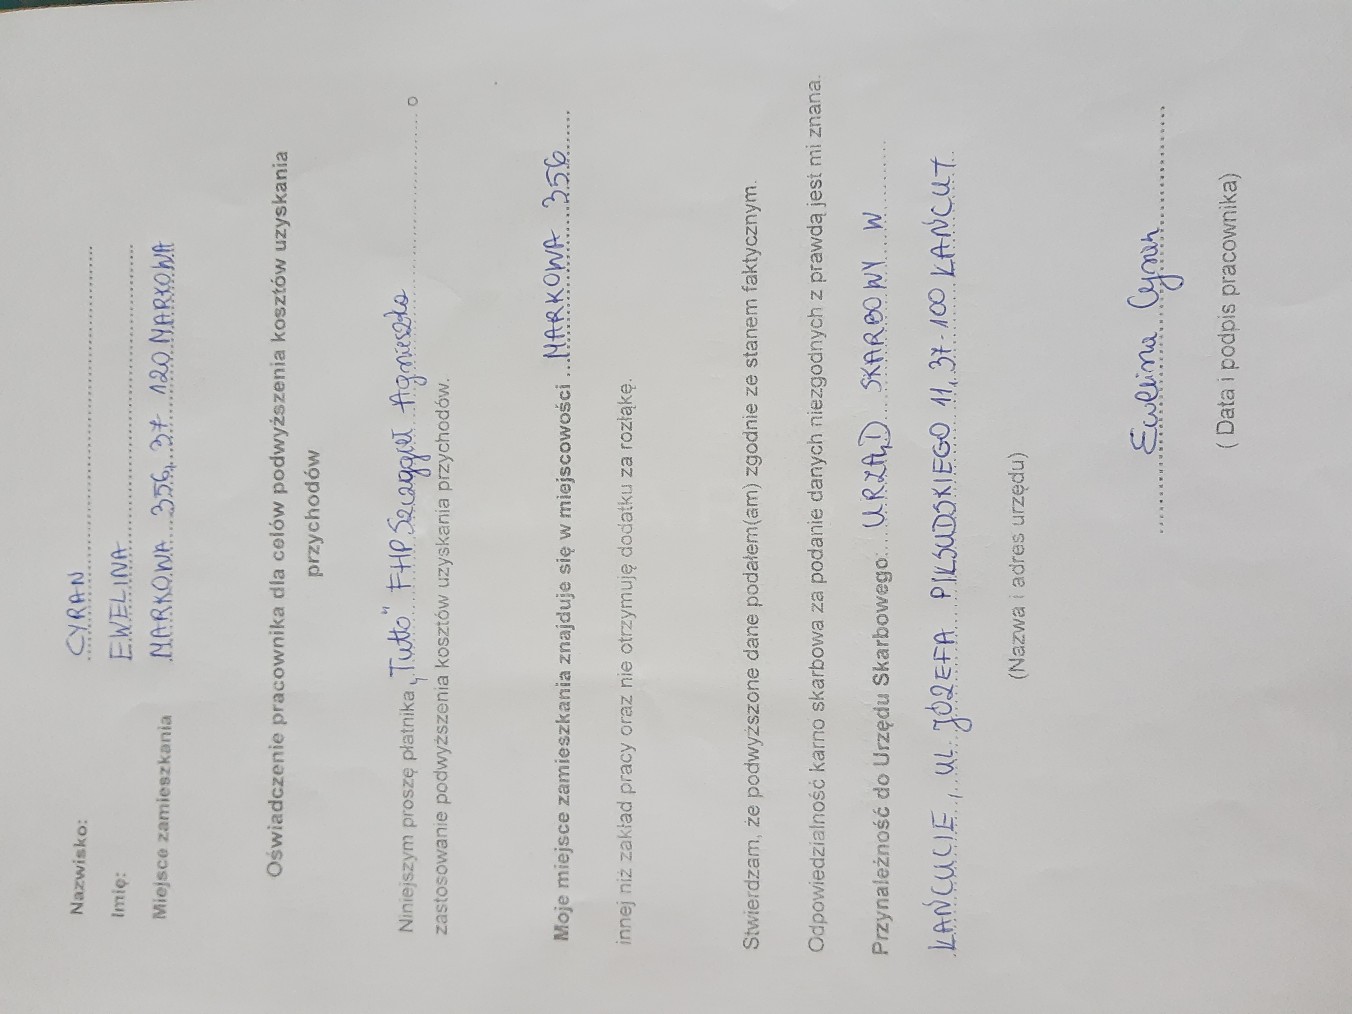 Nazwisko: CYRAN
Imię: EWELINA
Miejsce zamieszkania MARKOWA 356, 37-120 MARKOWA
Oświadczenie pracownika dla celów podwyższenia kosztów uzyskania
przychodów
Niniejszym proszę płatnika „Tutto" FHP Szczygieł Agnieszka o
zastosowanie podwyższenia kosztów uzyskania przychodów.
Moje miejsce zamieszkania znajduje się w miejscowości MARKOWA 356
innej niż zakład pracy oraz nie otrzymuję dodatku za rozłąkę.
Stwierdzam, że podwyższone dane podałem(am) zgodnie ze stanem faktycznym.
Odpowiedzialność karno skarbowa za podanie danych niezgodnych z prawdą jest mi znana.
Przynależność do Urzędu Skarbowego: URZĄD SKARBOWY W
ŁAŃCUCIE, UL. JÓZEFA PIŁSUDSKIEGO 11, 37-100 ŁAŃCUT
(Nazwa i adres urzędu)
Ewelina Cyran
( Data i podpis pracownika)